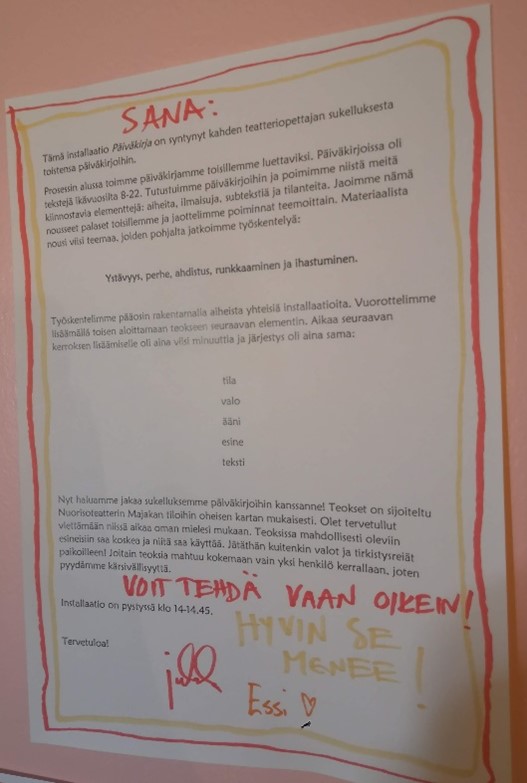 SANA:
Tämä installaatio Päiväkirja on syntynyt kahden teatteriopettajan sukelluksesta
toistensa päiväkirjoihin.
Prosessin alussa toimme päiväkirjamme toisillemme luettaviksi. Päiväkirjoissa oli
tekstejä ikävuosilta 8-22. Tutustuimme päiväkirjoihin ja poimimme niistä meitä
kiinnostavia elementtejä: aiheita, ilmaisuja, subtekstiä ja tilanteita. Jaoimme nämä
nousseet palaset toisillemme ja jaottelimme poiminnat teemoittain. Materiaalista
nousi viisi teemaa, joiden pohjalta jatkoimme työskentelyä:
Ystävyys, perhe, ahdistus, runkkaaminen ja ihastuminen.
Työskentelimme pääosin rakentamalla aiheista yhteisiä installaatioita. Vuorottelimme
lisäämällä toisen aloittamaan teokseen seuraavan elementin. Aikaa seuraavan
kerroksen lisäämiselle oli aina viisi minuuttia ja järjestys oli aina sama:
tila
valo
ääni
esine
teksti
Nyt haluamme jakaa sukelluksemme päiväkirjoihin kanssanne! Teokset on sijoiteltu
Nuorisoteatterin Majakan tiloihin oheisen kartan mukaisesti. Olet tervetullut
viettämään niissä aikaa oman mielesi mukaan. Teoksissa mahdollisesti oleviin
esineisiin saa koskea ja niitä saa käyttää. Jätäthän kuitenkin valot ja tirkistysreiät
paikoilleen! Joitain teoksia mahtuu kokemaan vain yksi henkilö kerrallaan, joten
pyydämme kärsivällisyyttä.
VOIT TEHDÄ VAAN OIKEIN!
Installaatio on pystyssä klo 14-14.45.
HYVIN SE
MENEE!
Tervetuloa!
Essi ♡